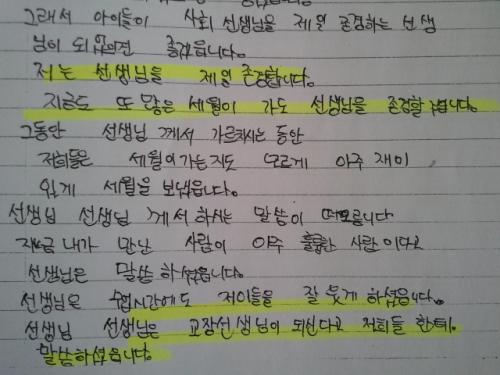 그래서 아이들이 사회 선생님을 제일 존경하는 선생
님이 되었으면 좋겠읍니다.
저는 선생님을 제일 존경합니다.
지금도 또 많은 세월이 가도 선생님을 존경할 것입니다.
그동안 선생님께서 가르치시는 동안
저희들은 세월이가는지도 모르게 아주 재미
있게 세월을 보냈읍니다.
선생님 선생님께서 하시는 말씀이 떠오릅니다
지금 내가 만난 사람이 아주 훌륭한 사람이다고
선생님은 말씀 하셨읍니다.
선생님은 수업시간에도 저이들을 잘 웃게 하셨읍니다.
선생님 선생님은 교장선생님이 되신다고 저희들 한테.
말씀하셨읍니다.